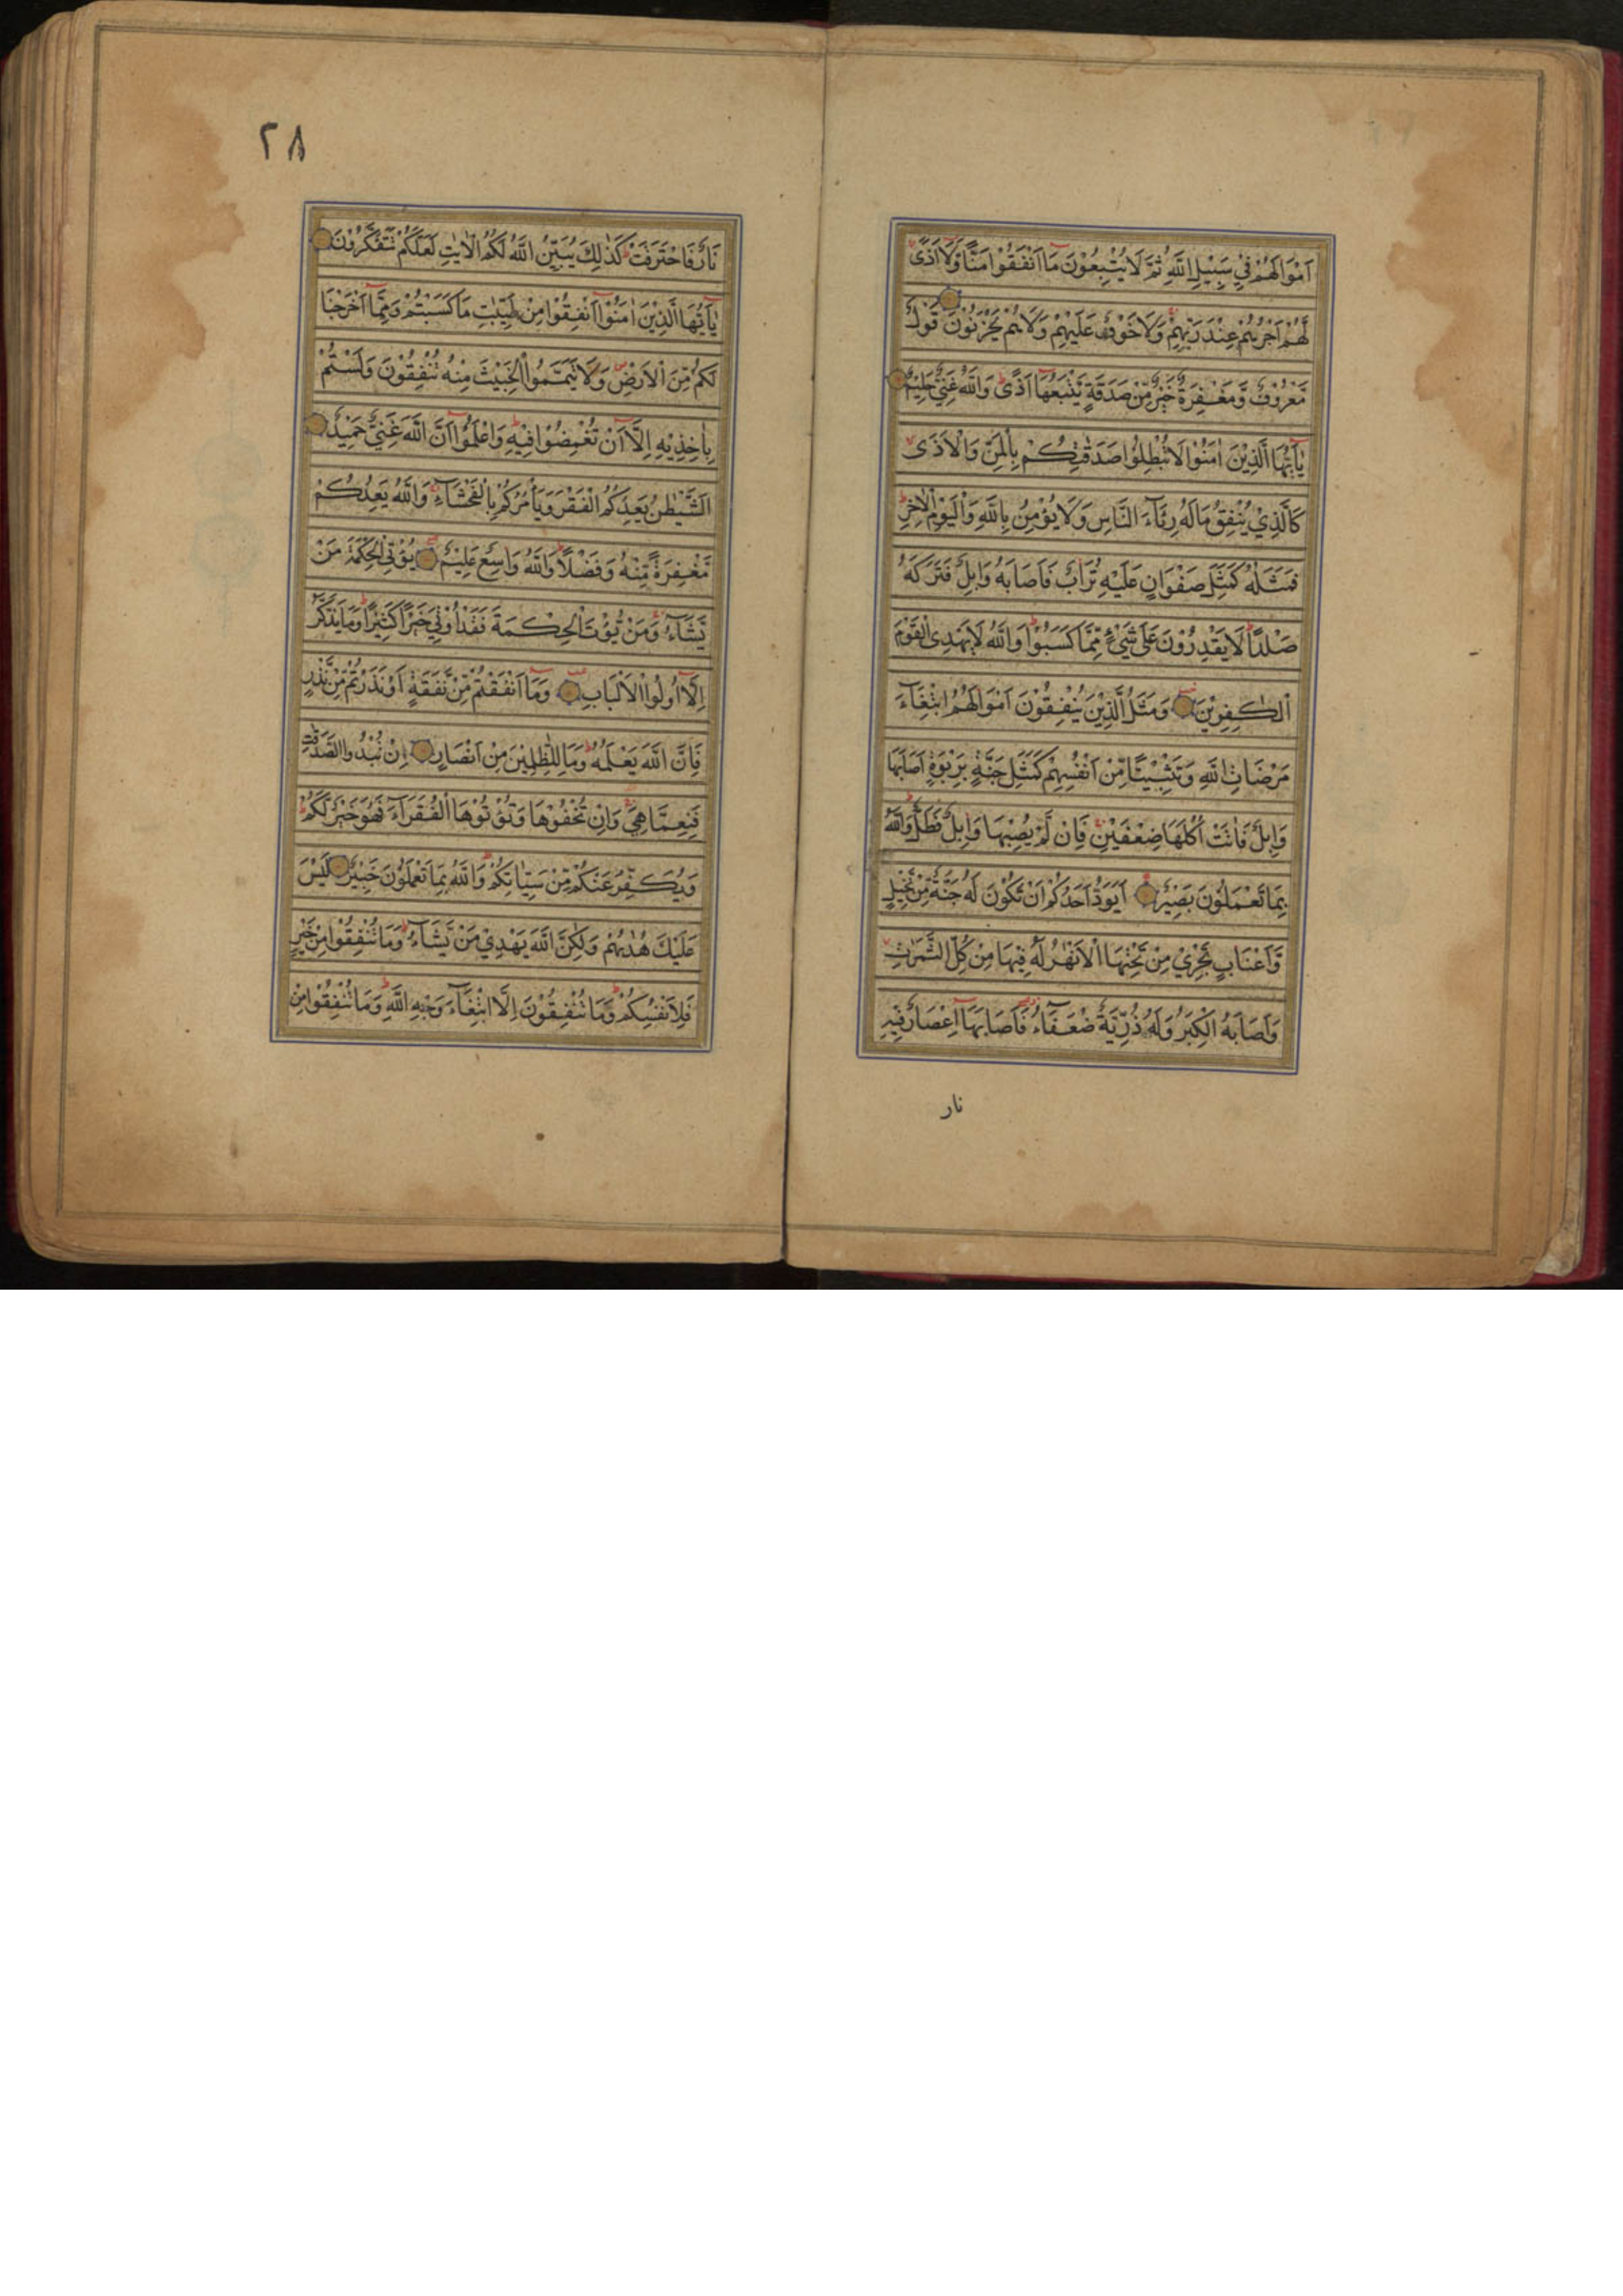 اَمْوَالَهُمْ فِيْ سَبِيْلِ اللّٰهِ ثُمَّ لَا يُتْبِعُوْنَ مَا اَنْفَقُوْا مَنًّا وَّلَا اَذًى
لَّهُمْ اَجْرُهُمْ عِنْدَ رَبِّهِمْ وَلَا خَوْفٌ عَلَيْهِمْ وَلَا هُمْ يَحْزَنُوْنَ قَوْلٌ
مَّعْرُوْفٌ وَّمَغْفِرَةٌ خَيْرٌ مِّنْ صَدَقَةٍ يَّتْبَعُهَا اَذًى وَاللّٰهُ غَنِيٌّ حَلِيْمٌ
يٰاَيُّهَا الَّذِيْنَ اٰمَنُوْا لَا تُبْطِلُوْا صَدَقٰتِكُمْ بِالْمَنِّ وَالْاَذٰى
كَالَّذِيْ يُنْفِقُ مَالَهُ رِئَآءَ النَّاسِ وَلَا يُؤْمِنُ بِاللّٰهِ وَالْيَوْمِ الْاٰخِرِ
فَمَثَلُهُ كَمَثَلِ صَفْوَانٍ عَلَيْهِ تُرَابٌ فَاَصَابَهُ وَابِلٌ فَتَرَكَهُ
صَلْدًا لَا يَقْدِرُوْنَ عَلٰى شَيْءٍ مِّمَّا كَسَبُوْا وَاللّٰهُ لَا يَهْدِى الْقَوْمَ
الْكٰفِرِيْنَ وَمَثَلُ الَّذِيْنَ يُنْفِقُوْنَ اَمْوَالَهُمُ ابْتِغَآءَ
مَرْضَاتِ اللّٰهِ وَتَثْبِيْتًا مِّنْ اَنْفُسِهِمْ كَمَثَلِ جَنَّةٍ بِرَبْوَةٍ اَصَابَهَا
وَابِلٌ فَاٰتَتْ اُكُلَهَا ضِعْفَيْنِ فَاِنْ لَّمْ يُصِبْهَا وَابِلٌ فَطَلٌّ وَاللّٰهُ
بِمَا تَعْمَلُوْنَ بَصِيْرٌ اَيَوَدُّ اَحَدُكُمْ اَنْ تَكُوْنَ لَهُ جَنَّةٌ مِّنْ نَّخِيْلٍ
وَّاَعْنَابٍ تَجْرِيْ مِنْ تَحْتِهَا الْاَنْهٰرُ لَهُ فِيْهَا مِنْ كُلِّ الثَّمَرٰتِ
وَاَصَابَهُ الْكِبَرُ وَلَهُ ذُرِّيَّةٌ ضُعَفَآءُ فَاَصَابَهَا اِعْصَارٌ فِيْهِ
نار
٢٨
نَارٌ فَاحْتَرَقَتْ كَذٰلِكَ يُبَيِّنُ اللّٰهُ لَكُمُ الْاٰيٰتِ لَعَلَّكُمْ تَتَفَكَّرُوْنَ
يٰاَيُّهَا الَّذِيْنَ اٰمَنُوْا اَنْفِقُوْا مِنْ طَيِّبٰتِ مَا كَسَبْتُمْ وَمِمَّا اَخْرَجْنَا
لَكُمْ مِّنَ الْاَرْضِ وَلَا تَيَمَّمُوا الْخَبِيْثَ مِنْهُ تُنْفِقُوْنَ وَلَسْتُمْ
بِاٰخِذِيْهِ اِلَّا اَنْ تُغْمِضُوْا فِيْهِ وَاعْلَمُوْا اَنَّ اللّٰهَ غَنِيٌّ حَمِيْدٌ
اَلشَّيْطٰنُ يَعِدُكُمُ الْفَقْرَ وَيَاْمُرُكُمْ بِالْفَحْشَآءِ وَاللّٰهُ يَعِدُكُمْ
مَّغْفِرَةً مِّنْهُ وَفَضْلًا وَاللّٰهُ وَاسِعٌ عَلِيْمٌ يُؤْتِى الْحِكْمَةَ مَنْ
يَّشَآءُ وَمَنْ يُّؤْتَ الْحِكْمَةَ فَقَدْ اُوْتِيَ خَيْرًا كَثِيْرًا وَمَا يَذَّكَّرُ
اِلَّا اُولُوا الْاَلْبَابِ وَمَا اَنْفَقْتُمْ مِّنْ نَّفَقَةٍ اَوْ نَذَرْتُمْ مِّنْ نَّذْرٍ
فَاِنَّ اللّٰهَ يَعْلَمُهُ وَمَا لِلظّٰلِمِيْنَ مِنْ اَنْصَارٍ اِنْ تُبْدُوا الصَّدَقٰتِ
فَنِعِمَّا هِيَ وَاِنْ تُخْفُوْهَا وَتُؤْتُوْهَا الْفُقَرَآءَ فَهُوَ خَيْرٌ لَّكُمْ
وَيُكَفِّرُ عَنْكُمْ مِّنْ سَيِّاٰتِكُمْ وَاللّٰهُ بِمَا تَعْمَلُوْنَ خَبِيْرٌ لَيْسَ
عَلَيْكَ هُدٰىهُمْ وَلٰكِنَّ اللّٰهَ يَهْدِيْ مَنْ يَّشَآءُ وَمَا تُنْفِقُوْا مِنْ خَيْرٍ
فَلِاَنْفُسِكُمْ وَمَا تُنْفِقُوْنَ اِلَّا ابْتِغَآءَ وَجْهِ اللّٰهِ وَمَا تُنْفِقُوْا مِنْ